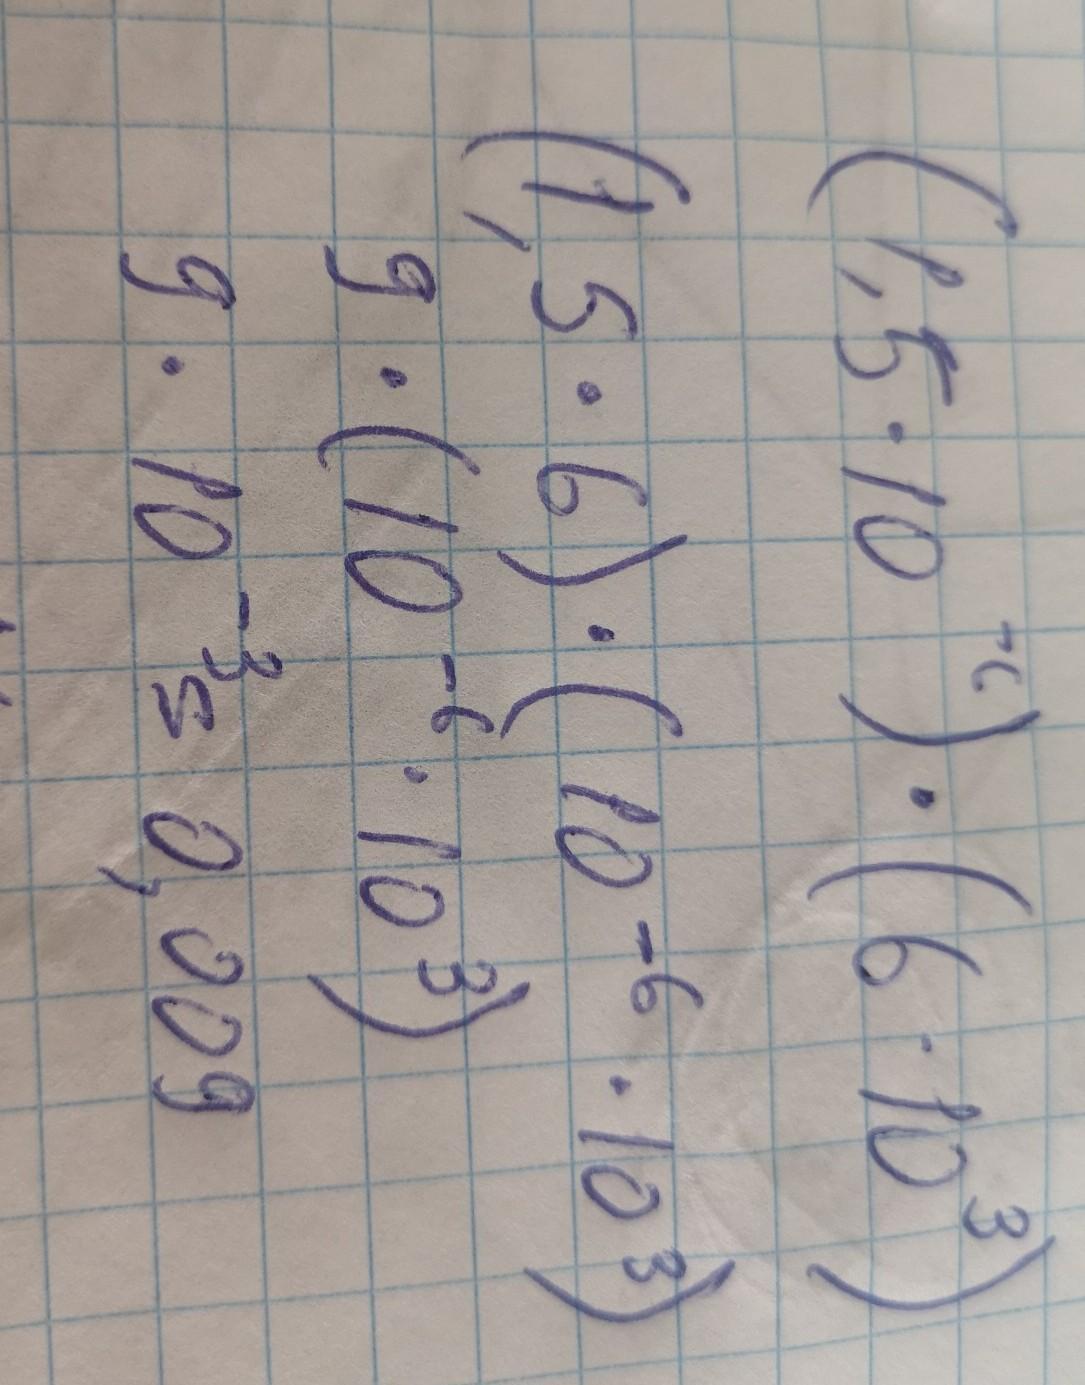 (1,5·10⁻⁶)·(6·10³)
(1,5·6)·(10⁻⁶·10³)
9·(10⁻⁶·10³)
9·10⁻³=0,009